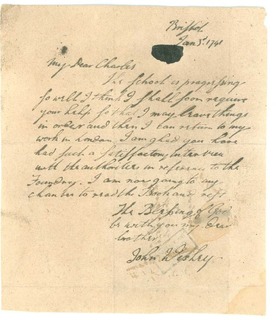 Bristol
Jan 5. 1741
My Dear Charles
The school is progressing
so well I think I shall soon require
your help so that I may leave things
in order and then I can return to my
work in London. I am glad you have
had such a satisfactory interview
with the authorities in reference to the
Foundry. I am now going to my
chamber to read the
The Blessing of
be with you my Dear
brother
John Wesley.